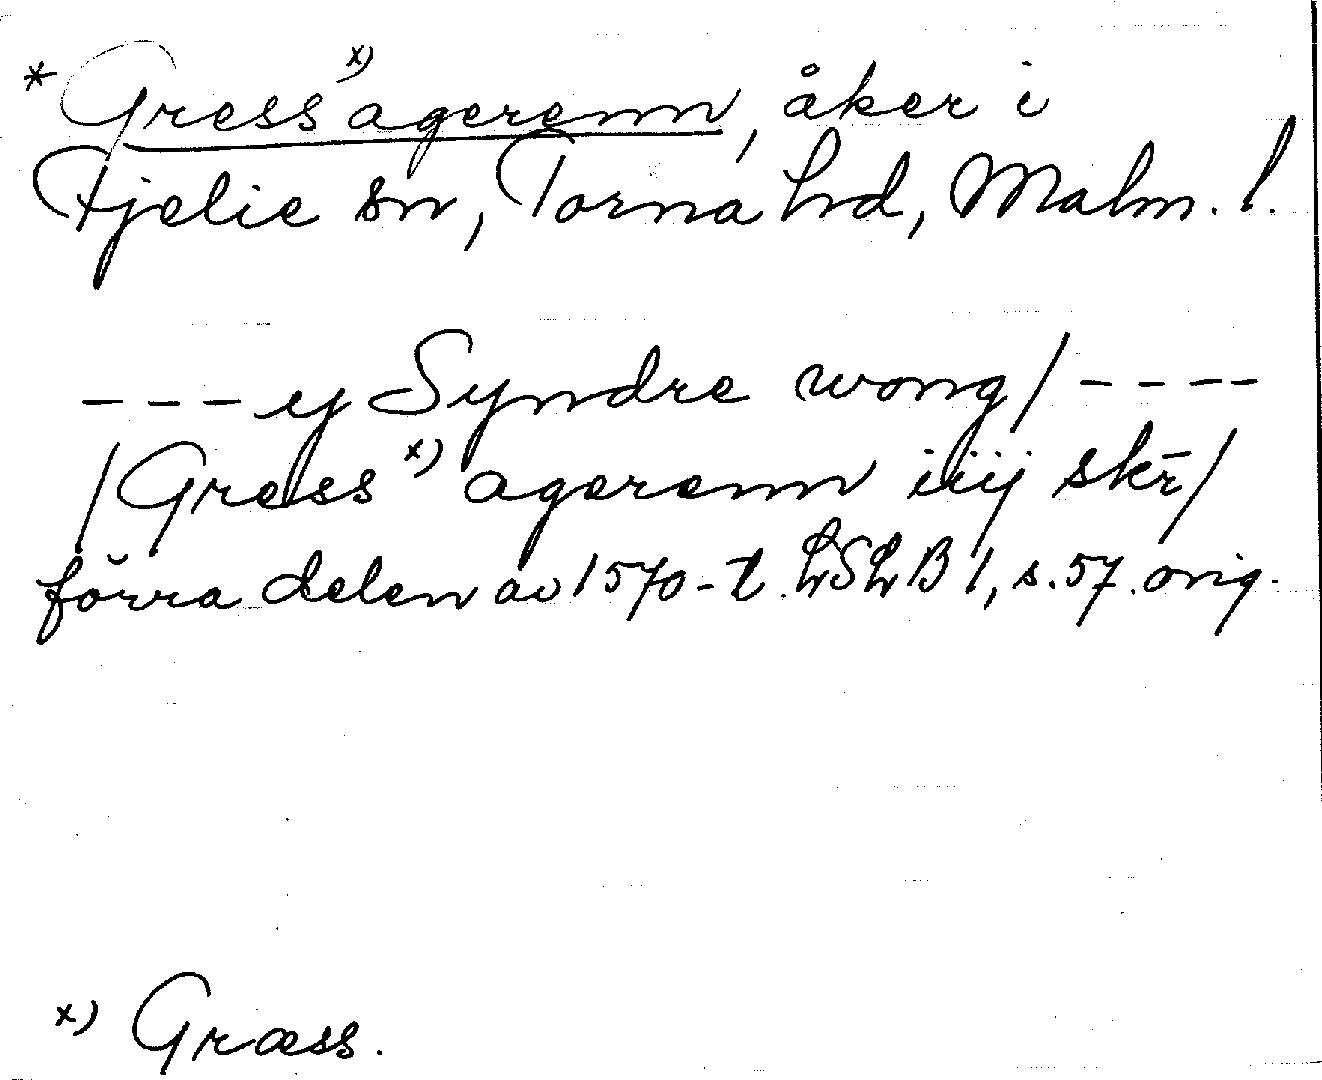 * Gress x) agerenn, åker i
Fjelie sn, Torna hd, Malm. l.
---- ij Syndre wong/----
/Gress x) agerenn iiij skr̄/
förra delen av 1570-t. LSLB 1, s. 57. orig.
x) Græss.